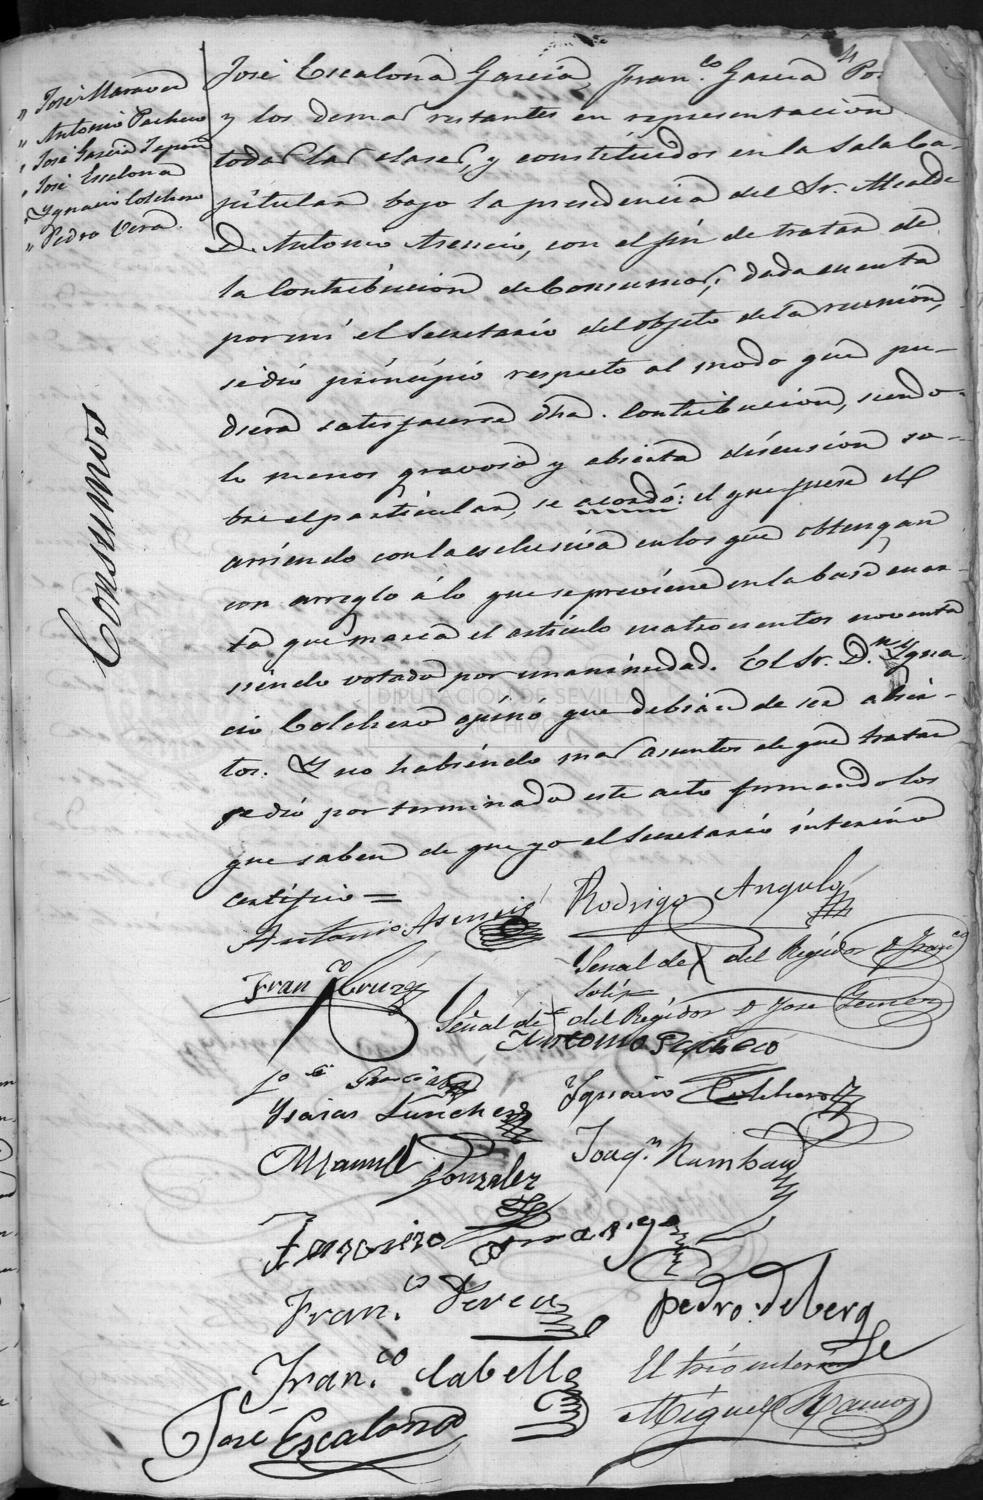 " José Maraver
" Antonio Pacheco
" José Garcia
" José Escalona
" Ygnacio Colchero
" Pedro Vera
José Escalona Garcia, Fran.co Garcia
y los demas restantes en representacion
todas las clases, y constituidos en la Sala Ca-
pitular bajo la presidencia del Sr. Alcalde
D. Antonio Asencio, con el fin de tratar de
la Contribucion de Consumos; dada cuenta
por mi el Secretario del objeto de la reunion,
se dió principio respecto al modo que pu-
diera satisfacerse dha. Contribucion, siendo
lo menos gravosa y abierta discusion so-
bre el particular, se acordó: el que fuera el
arriendo con la esclusiva en los que obtengan
con arreglo á lo que se previene en la base cuar-
ta que marca el artículo cuatrocientos noventa
siendo votado por unanimidad. El Sr. D.n Ygna-
cio Colchero opinó que debian de ser abier-
tos. Y no habiendo mas asuntos de que tratar
se dió por terminado este acto firmando los
que saben de que yo el Secretario interino
certifico =
Consumos
DIPUTACIÓN DE SEVILLA
ARCHIVO
Antonio Asencio
Rodrigo Angulo
Señal de X del Regidor D Fran.co
Solis
Fran.co Cruz
Señal de X del Regidor D Jose
Antonio Pacheco
Garcia
Ygnacio Colchero
Ysaias Sunchez
Manuel Gonzalez
Joaq.n Rambau
Fran.co Perea
pedro de berg
Fran.co Cabello
El Srio interino
José Escalona
Miguel Ramos